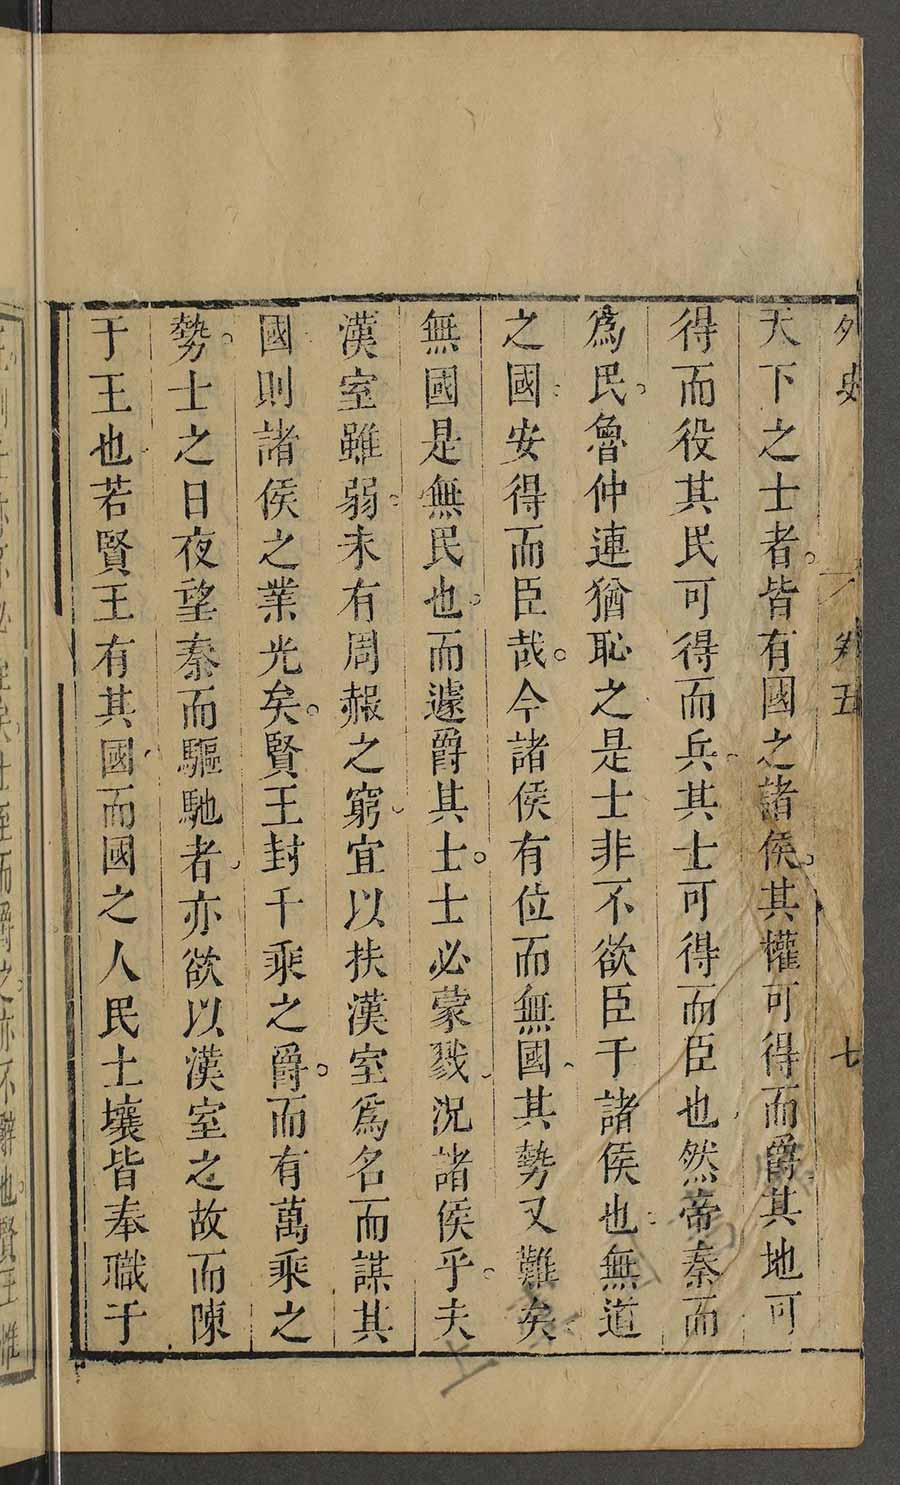 外史 卷五 七
天下之士者皆有國之諸侯其權可得而爵其地可
得而役其民可得而兵其士可得而臣也然帝秦而
爲民魯仲連猶恥之是士非不欲臣于諸侯也無道
之國安得而臣哉今諸侯有位而無國其勢又難矣
無國是無民也而遽爵其士士必蒙戮況諸侯乎夫
漢室雖弱未有周赧之窮宜以扶漢室爲名而謀其
國則諸侯之業光矣賢王封千乘之爵而有萬乘之
勢士之日夜望秦而驅馳者亦欲以漢室之故而陳
于王也若賢王有其國而國之人民土壤皆奉職于